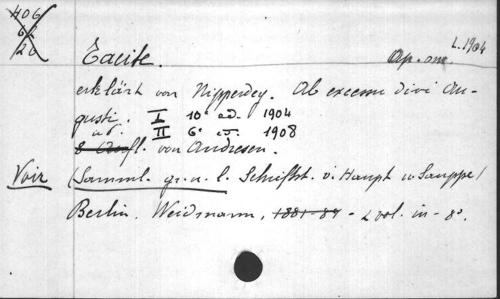 406
62
20
L. 1904
Tacite. Ap. om.
erklärt von Nipperdey. Ab excessu divi Au-
gusti. I 10e ed. 1904
II 6e ed. 1908
8 Aufl. von Andresen.
Voir (Samml. gr. u. l. Schriftst. v. Haupt u Sauppe)
Berlin, Weidmann, 1881-84 - 2 vol. in-8o.